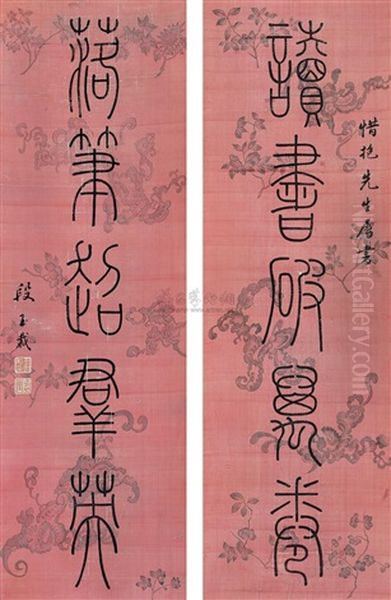 惜抱先生屬書
讀書破萬卷
落筆超羣英
段玉裁